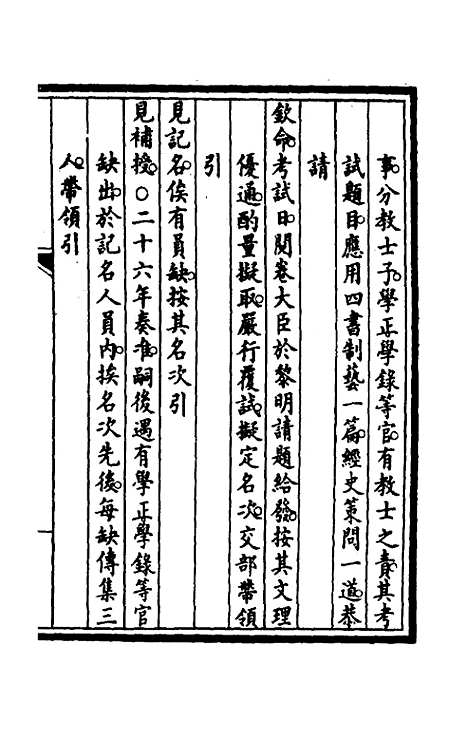 事。分教士子。學正學錄等官。有教士之責。其考
試題目。應用四書制藝一篇。經史策問一道。恭
請
欽命。考試日。閱卷大臣於黎明請題給發。按其文理
優通。酌量擬取。嚴行覆試。擬定名次。交部帶領
引
見記名。俟有員缺。按其名次引
見補授。○二十六年奏准。嗣後遇有學正學錄等官
缺出。於記名人員內。挨名次先後。每缺傳集三
人。帶領引